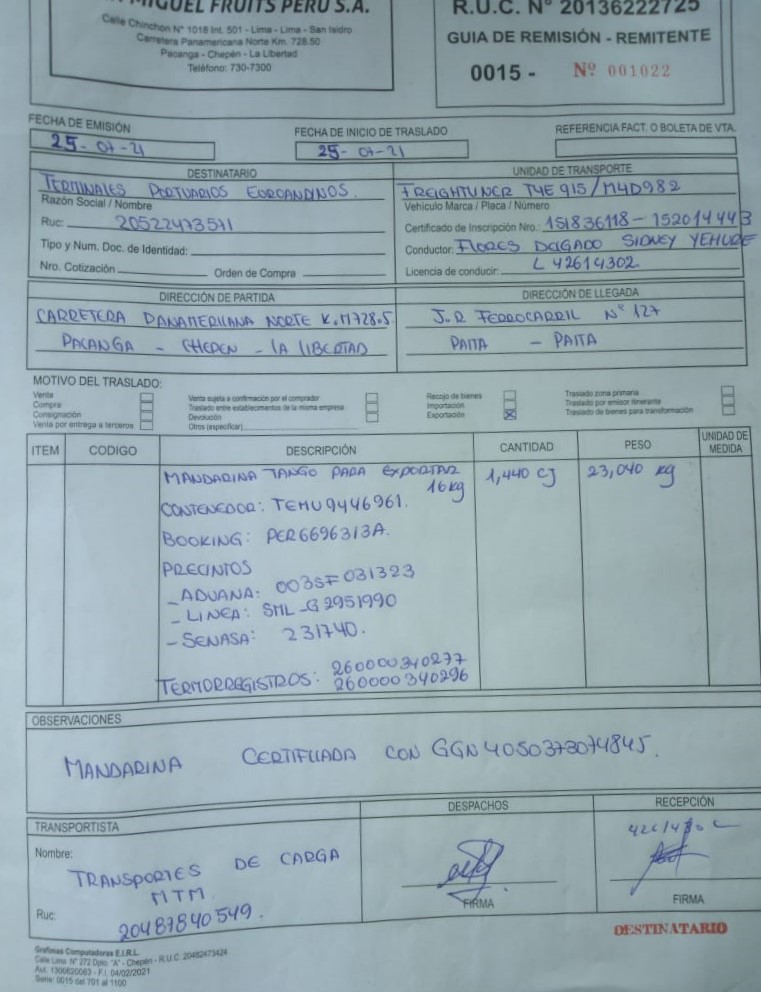 MIGUEL FRUITS PERU S.A.
Calle Chinchón N° 1018 Int. 501 - Lima - Lima - San Isidro
Carretera Panamericana Norte Km. 728.50
Pacanga - Chepén - La Libertad
Teléfono: 730-7300
R.U.C. N° 20136222725
GUIA DE REMISIÓN - REMITENTE
0015 - Nº 001022
FECHA DE EMISIÓN
25-07-21
FECHA DE INICIO DE TRASLADO
25-07-21
REFERENCIA FACT. O BOLETA DE VTA.
DESTINATARIO
TERMINALES PORTUARIOS EUROANDINOS.
Razón Social / Nombre
Ruc: 20522473571
Tipo y Num. Doc. de Identidad:
Nro. Cotización Orden de Compra
UNIDAD DE TRANSPORTE
FREIGHTLINER T4E 915/M4D982
Vehículo Marca / Placa / Número
Certificado de Inscripción Nro.: 151836118-152014443
Conductor: FLORES DELGADO SIDNEY YEHUDE
Licencia de conducir: L 42614302
DIRECCIÓN DE PARTIDA
CARRETERA PANAMERICANA NORTE K.M728.5
PACANGA - CHEPEN - LA LIBERTAD
DIRECCIÓN DE LLEGADA
J.R FERROCARRIL N° 127
PAITA - PAITA
MOTIVO DEL TRASLADO:
Venta
Compra
Consignación
Venta por entrega a terceros
Venta sujeta a confirmación por el comprador
Traslado entre establecimientos de la misma empresa
Devolución
Otros (especificar)
Recojo de bienes
Importación
Exportación X
Traslado zona primaria
Traslado por emisor itinerante
Traslado de bienes para transformación
ITEM CODIGO DESCRIPCIÓN CANTIDAD PESO UNIDAD DE MEDIDA
MANDARINA TANGO PARA EXPORTAR 1,440 CJ 23,040 kg
16kg
CONTENEDOR: TEMU9446961.
BOOKING: PER6696313A.
PRECINTOS
- ADUANA: 003SF031323
- LINEA: SML-G2951990
- SENASA: 231740.
TERMORREGISTROS: 260000340277
260000340296
OBSERVACIONES
MANDARINA CERTIFICADA CON GGN 4050373074845.
TRANSPORTISTA
Nombre:
TRANSPORTES DE CARGA
MTM.
Ruc: 20487840549.
DESPACHOS
FIRMA
RECEPCIÓN
FIRMA
DESTINATARIO
Grafimas Computadoras E.I.R.L.
Calle Lima N° 272 Dpto. "A" - Chepén - R.U.C. 20482473424
Aut. 1300620083 - F.I. 04/02/2021
Serie: 0015 del 701 al 1100